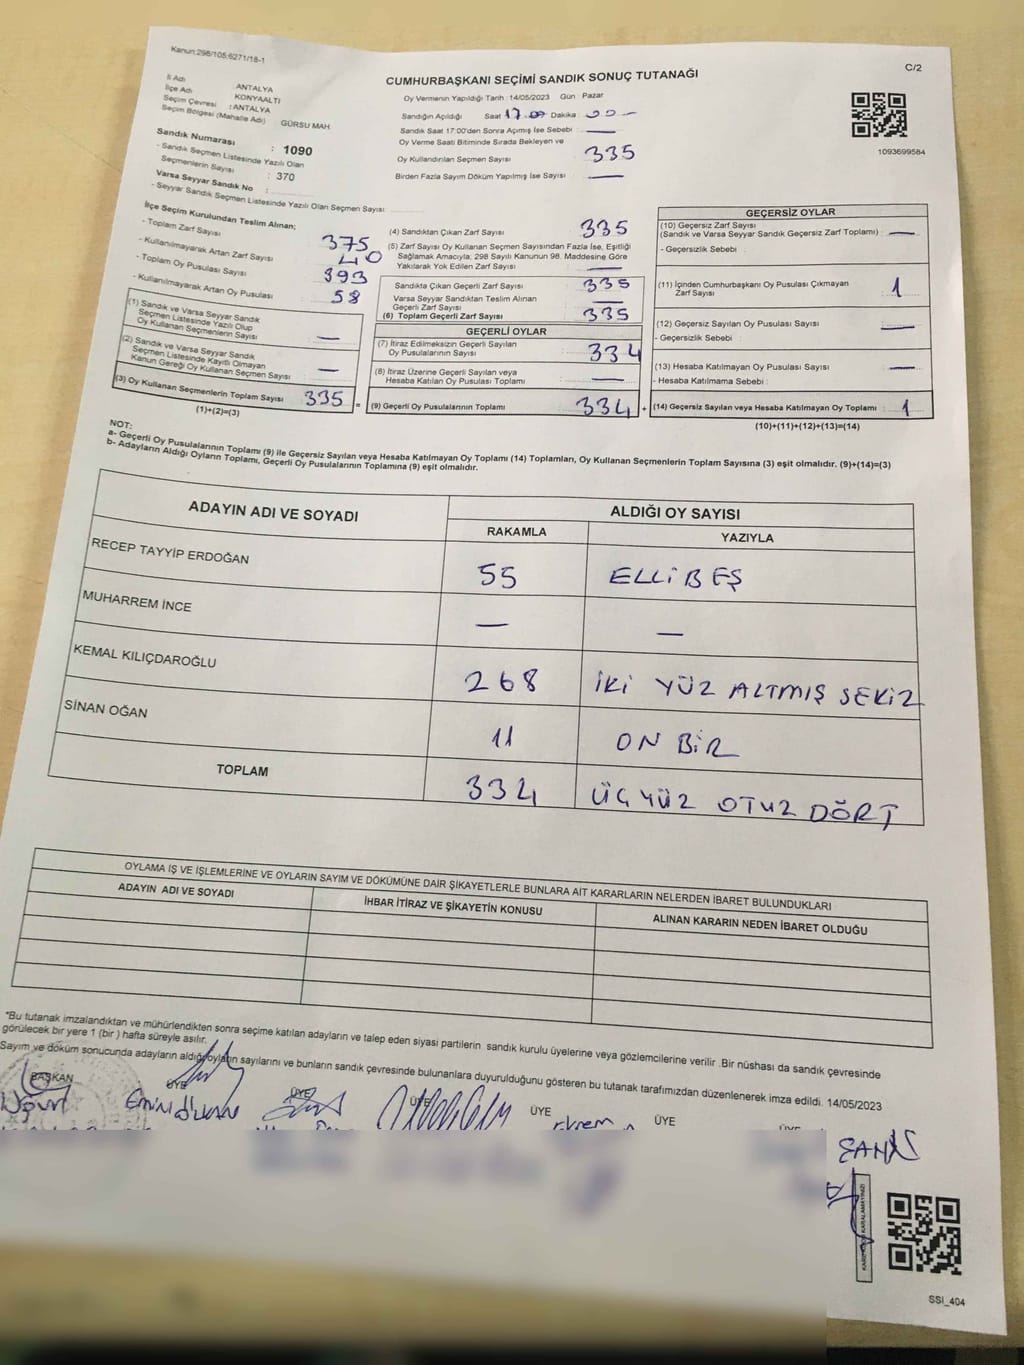 Kanun:298/105;6271/18-1
C/2
CUMHURBAŞKANI SEÇİMİ SANDIK SONUÇ TUTANAĞI
İl Adı ANTALYA
İlçe Adı KONYAALTI
Seçim Çevresi : ANTALYA
Seçim Bölgesi (Mahalle Adı) GÜRSU MAH.
Sandık Numarası : 1090
- Sandık Seçmen Listesinde Yazılı Olan
Seçmenlerin Sayısı : 370
Varsa Seyyar Sandık No :
- Seyyar Sandık Seçmen Listesinde Yazılı Olan Seçmen Sayısı
Oy Vermenin Yapıldığı Tarih : 14/05/2023 Gün : Pazar
Sandığın Açıldığı Saat 17.00 Dakika 00 —
Sandık Saat 17:00'den Sonra Açımış İse Sebebi —
Oy Verme Saati Bitiminde Sırada Bekleyen ve
Oy Kullandırılan Seçmen Sayısı 335
Birden Fazla Sayım Döküm Yapılmış İse Sayısı —
1093699584
İlçe Seçim Kurulundan Teslim Alınan;
- Toplam Zarf Sayısı 375
- Kullanılmayarak Artan Zarf Sayısı 40
- Toplam Oy Pusulası Sayısı 393
- Kullanılmayarak Artan Oy Pusulası 58
(1) Sandık ve Varsa Seyyar Sandık
Seçmen Listesinde Yazılı Olup
Oy Kullanan Seçmenlerin Sayısı —
(2) Sandık ve Varsa Seyyar Sandık
Seçmen Listesinde Kayıtlı Olmayan
Kanun Gereği Oy Kullanan Seçmen Sayısı —
(3) Oy Kullanan Seçmenlerin Toplam Sayısı 335 =
(1)+(2)=(3)
(4) Sandıktan Çıkan Zarf Sayısı 335
(5) Zarf Sayısı Oy Kullanan Seçmen Sayısından Fazla İse, Eşitliği
Sağlamak Amacıyla; 298 Sayılı Kanunun 98. Maddesine Göre
Yakılarak Yok Edilen Zarf Sayısı —
Sandıkta Çıkan Geçerli Zarf Sayısı : 335
Varsa Seyyar Sandıktan Teslim Alınan
Geçerli Zarf Sayısı —
(6) Toplam Geçerli Zarf Sayısı : 335
GEÇERLİ OYLAR
(7) İtiraz Edilmeksizin Geçerli Sayılan
Oy Pusulalarının Sayısı : 334
(8) İtiraz Üzerine Geçerli Sayılan veya
Hesaba Katılan Oy Pusulası Toplamı : —
(9) Geçerli Oy Pusulalarının Toplamı : 334 +
GEÇERSİZ OYLAR
(10) Geçersiz Zarf Sayısı
(Sandık ve Varsa Seyyar Sandık Geçersiz Zarf Toplamı) : —
- Geçersizlik Sebebi :
(11) İçinden Cumhurbaşkanı Oy Pusulası Çıkmayan
Zarf Sayısı : 1
(12) Geçersiz Sayılan Oy Pusulası Sayısı : —
- Geçersizlik Sebebi :
(13) Hesaba Katılmayan Oy Pusulası Sayısı : —
- Hesaba Katılmama Sebebi :
(14) Geçersiz Sayılan veya Hesaba Katılmayan Oy Toplamı : 1
(10)+(11)+(12)+(13)=(14)
NOT:
a- Geçerli Oy Pusulalarının Toplamı (9) ile Geçersiz Sayılan veya Hesaba Katılmayan Oy Toplamı (14) Toplamları, Oy Kullanan Seçmenlerin Toplam Sayısına (3) eşit olmalıdır. (9)+(14)=(3)
b- Adayların Aldığı Oyların Toplamı, Geçerli Oy Pusulalarının Toplamına (9) eşit olmalıdır.
ADAYIN ADI VE SOYADI ALDIĞI OY SAYISI
RAKAMLA YAZIYLA
RECEP TAYYİP ERDOĞAN 55 ELLİBEŞ
MUHARREM İNCE — —
KEMAL KILIÇDAROĞLU 268 İKİ YÜZ ALTMIŞ SEKİZ
SİNAN OĞAN 11 ON BİR
TOPLAM 334 ÜÇ YÜZ OTUZ DÖRT
OYLAMA İŞ VE İŞLEMLERİNE VE OYLARIN SAYIM VE DÖKÜMÜNE DAİR ŞİKAYETLERLE BUNLARA AİT KARARLARIN NELERDEN İBARET BULUNDUKLARI
ADAYIN ADI VE SOYADI İHBAR İTİRAZ VE ŞİKAYETİN KONUSU ALINAN KARARIN NEDEN İBARET OLDUĞU
*Bu tutanak imzalandıktan ve mühürlendikten sonra seçime katılan adayların ve talep eden siyasi partilerin sandık kurulu üyelerine veya gözlemcilerine verilir .Bir nüshası da sandık çevresinde
görülecek bir yere 1 (bir ) hafta süreyle asılır.
Sayım ve döküm sonucunda adayların aldığı oyların sayılarını ve bunların sandık çevresinde bulunanlara duyurulduğunu gösteren bu tutanak tarafımızdan düzenlenerek imza edildi. 14/05/2023
BAŞKAN ÜYE ÜYE ÜYE ÜYE ÜYE
SSİ_404